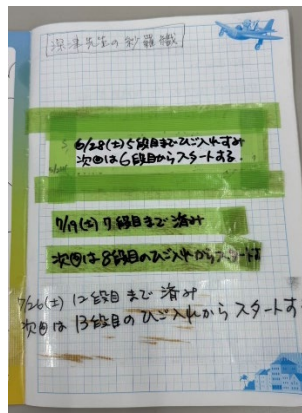 深津先生の紗羅織
6/28(土)5段目までひご入れすみ
次回は6段目からスタートする.
7/19(土)7段目まで済み
次回は8段目のひご入れからスタートす
7/26(土)12段目まで済み
次回は13段目のひご入れからスタートする